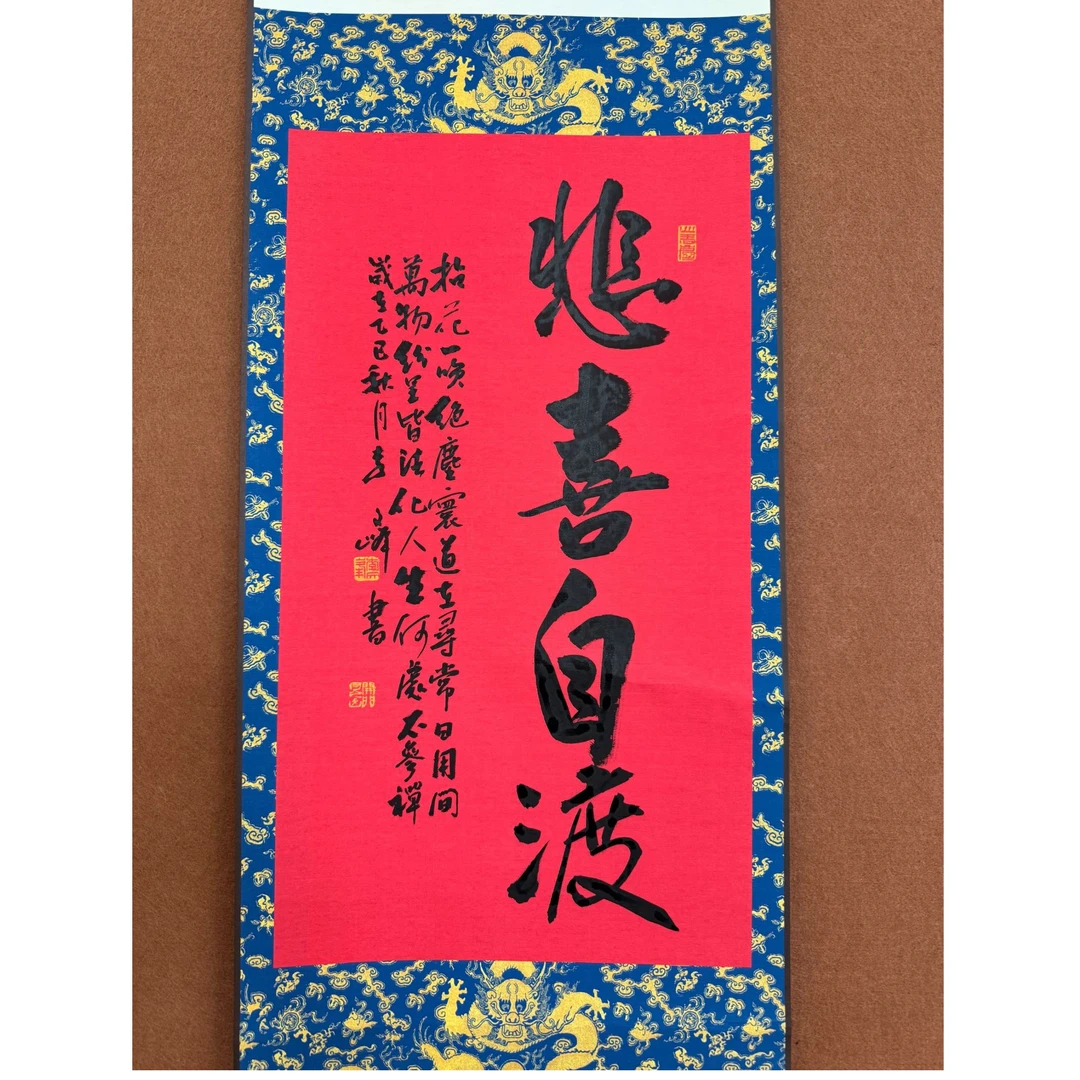 悲喜自渡
拈花一笑絶塵寰道在尋常日用間
萬物紛呈皆法化人生何處不參禪
歲在乙巳秋月書